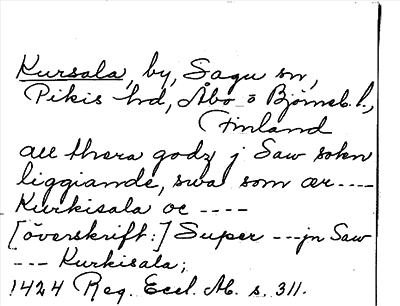 Kursala, by, Sagu sn,
Pikis hd, Åbo o Björneb. l.,
Finland
all thera godz j Saw sokn
liggiande, swa som ær ----
Kurkisala oc ----
[överskrift:] Super --- jn Saw
--- Kurkisala;
1424 Reg. Eccl. Ab. s. 311.